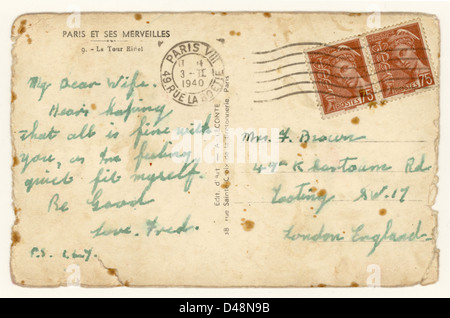 PARIS ET SES MERVEILLES
9. - La Tour Eiffel
My Dear Wife.
Hears hoping
that all is fine with
you, as I'm feeling
quiet fit myself.
Be Good
Love. Fred.
P.S. I.L.Y.
PARIS VIII
3 - II
1940
49, RUE LA BOETIE
POSTES 75
POSTES 75
Edit. d'Art - A. LECONTE
Paris
Mrs. F. Brown
47 Khartoum Rd
Tooting S.W.17
London England
alamy
Image ID: D48N9B
www.alamy.com